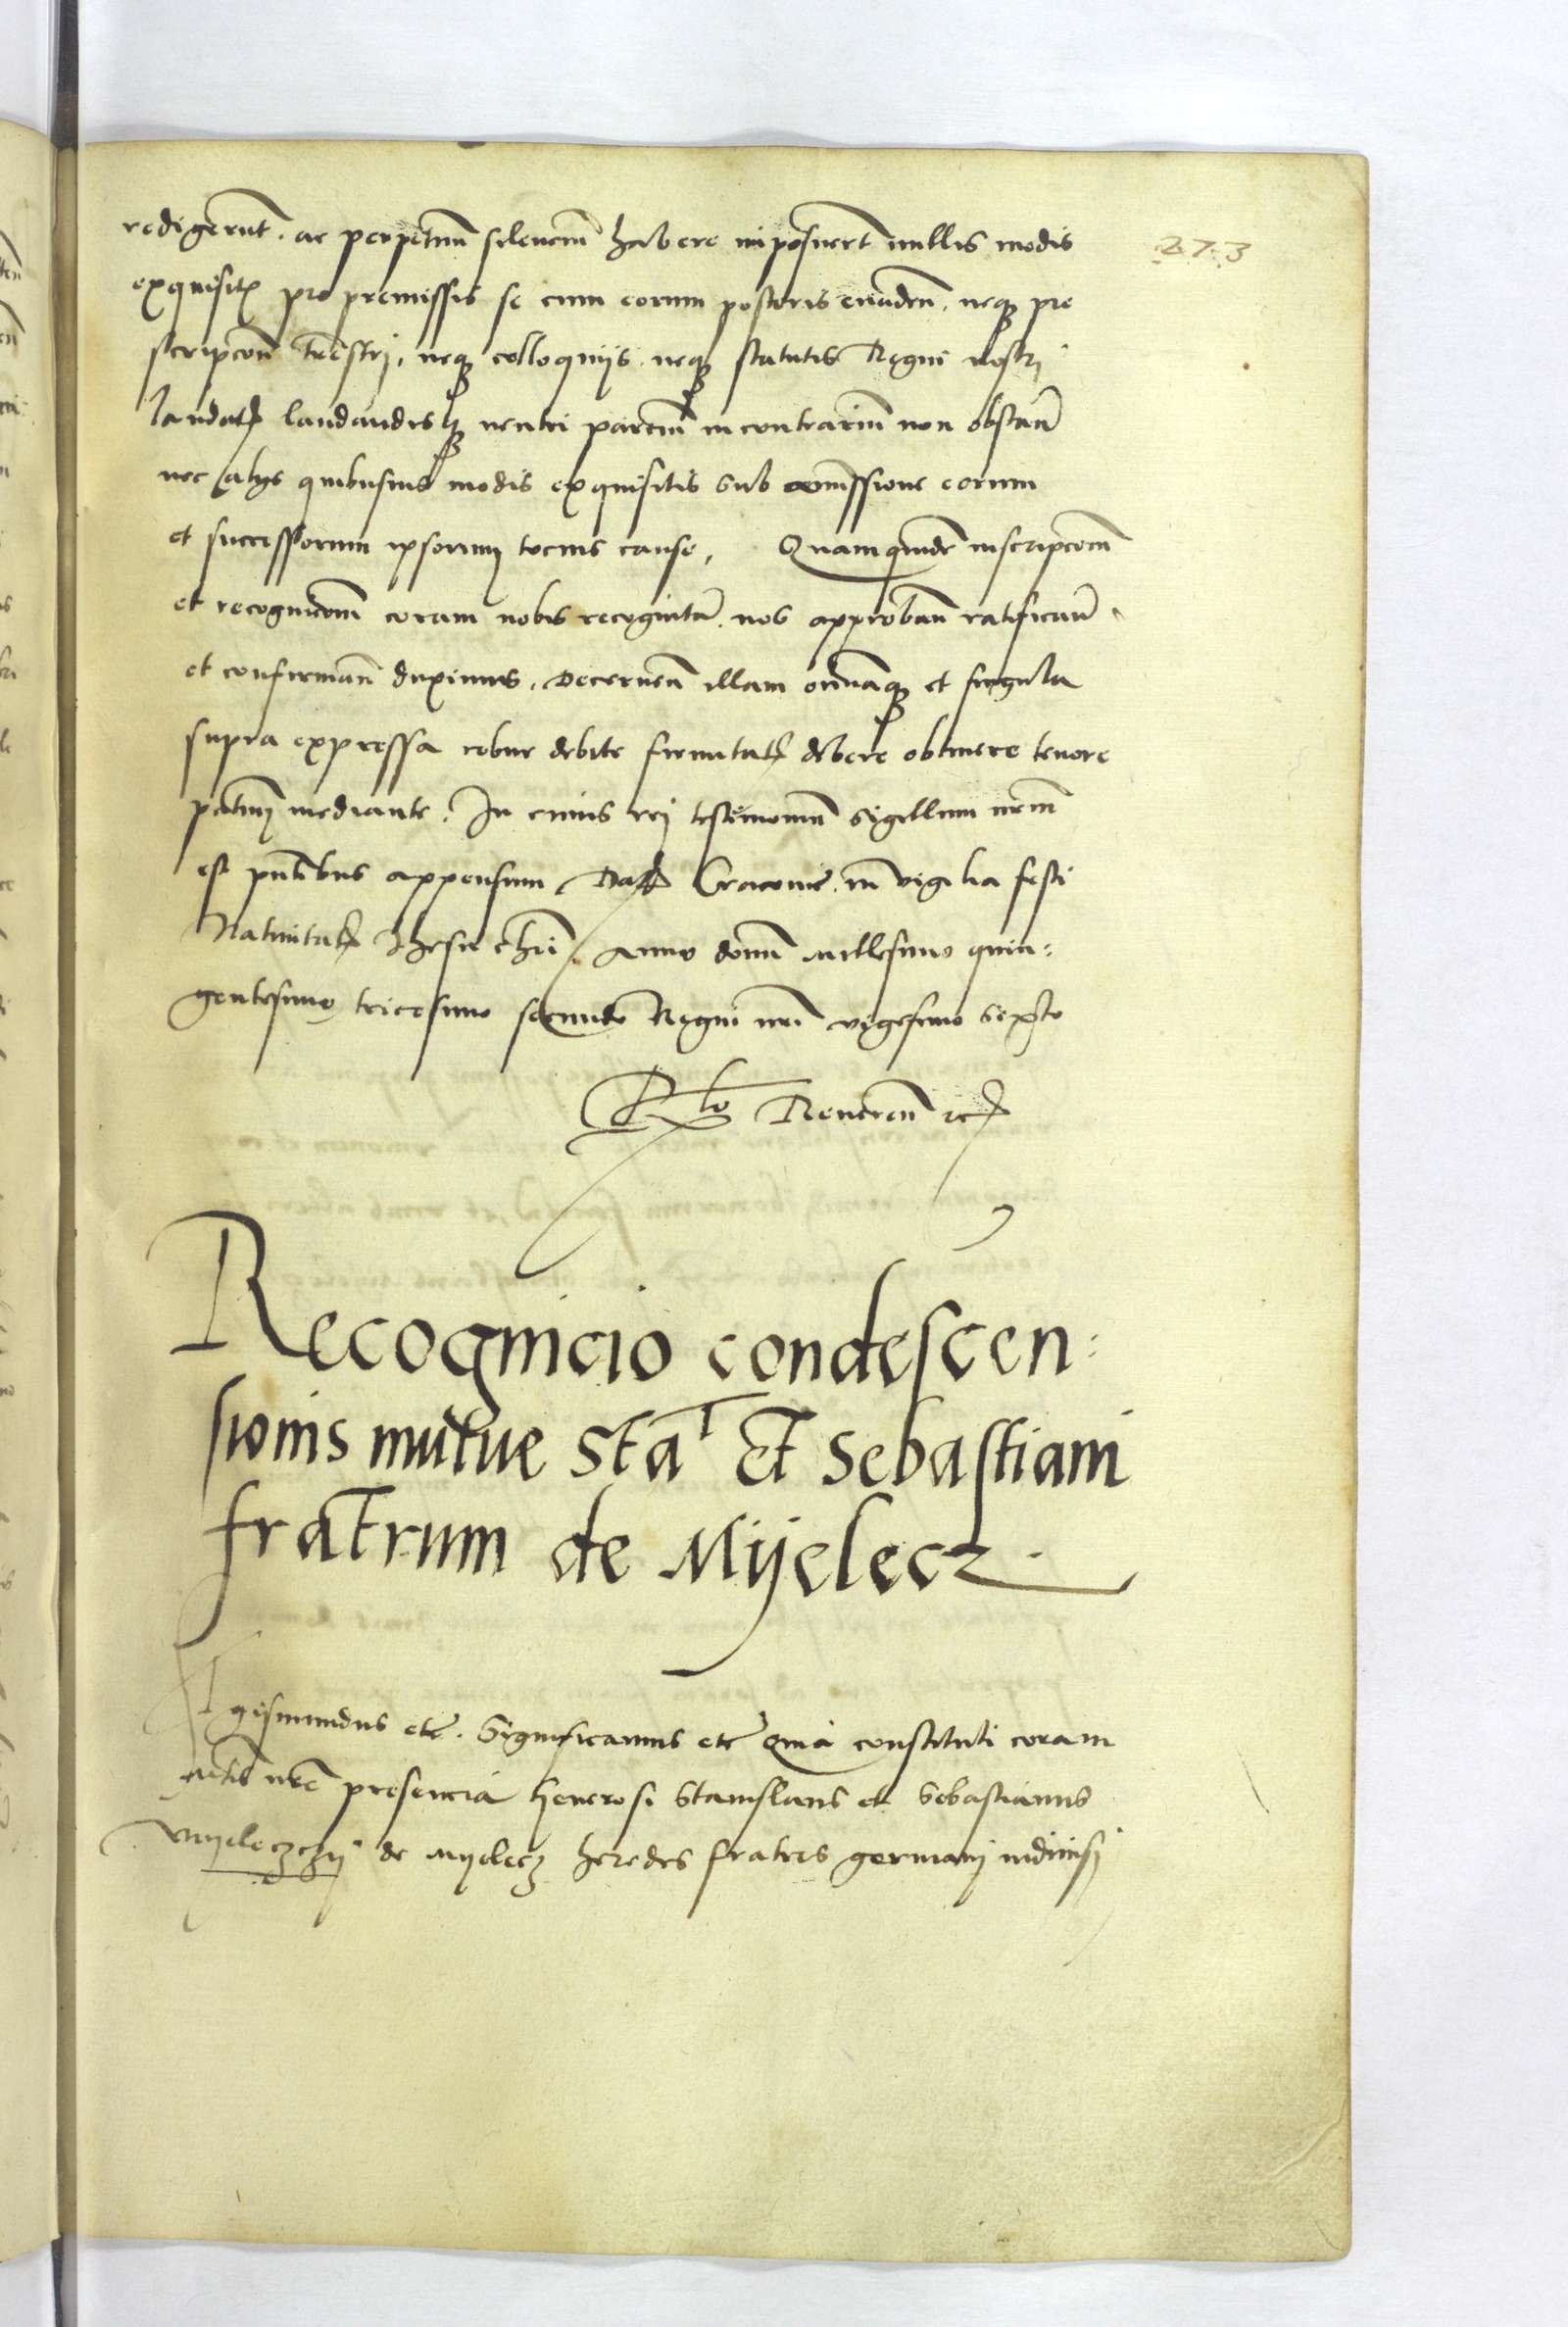 redigerunt. ac perpetuum silencium habere imposuerunt nullis modis
273
exquisitis pro premissis se cum eorum posteris evadendi, neque pre
scripcione terrestrj, neque colloquijs neque statutis Regni nostrj
laudatis laudandisque neutri parcium in contrarium non obstantibus
nec alijs quibusvis modis exquisitis sub amissione eorum
et successorum ipsorum tocius cause, Quamquidem inscripcionem
et recognicionem coram nobis recognitam nos approbandam ratificandam
et confirmandam duximus, Decernentes illam omniaque et singula
supra expressa robur debite firmitatis debere obtinere tenore
presentium mediante. In cuius rej testimonium Sigillum nostrum
est presentibus appensum Datum Cracovie in vigilia festi
Nativitatis Jhesu christi Anno domini Millesimo quin:
gentesimo tricesimo secundo Regni nostri vigesimo Sexto
Relatio Reverendi etc
Recognicio condescen:
sionis mutue Sta et Sebastiani
fratrum de Mijelecz.
Sigismundus etc. Significamus etc Quia constituti coram
actis nostre presencia Generosi Stanislaus et Sebastianus
Mijeleczchij de Mijelecz heredes fratres germanj indivisj